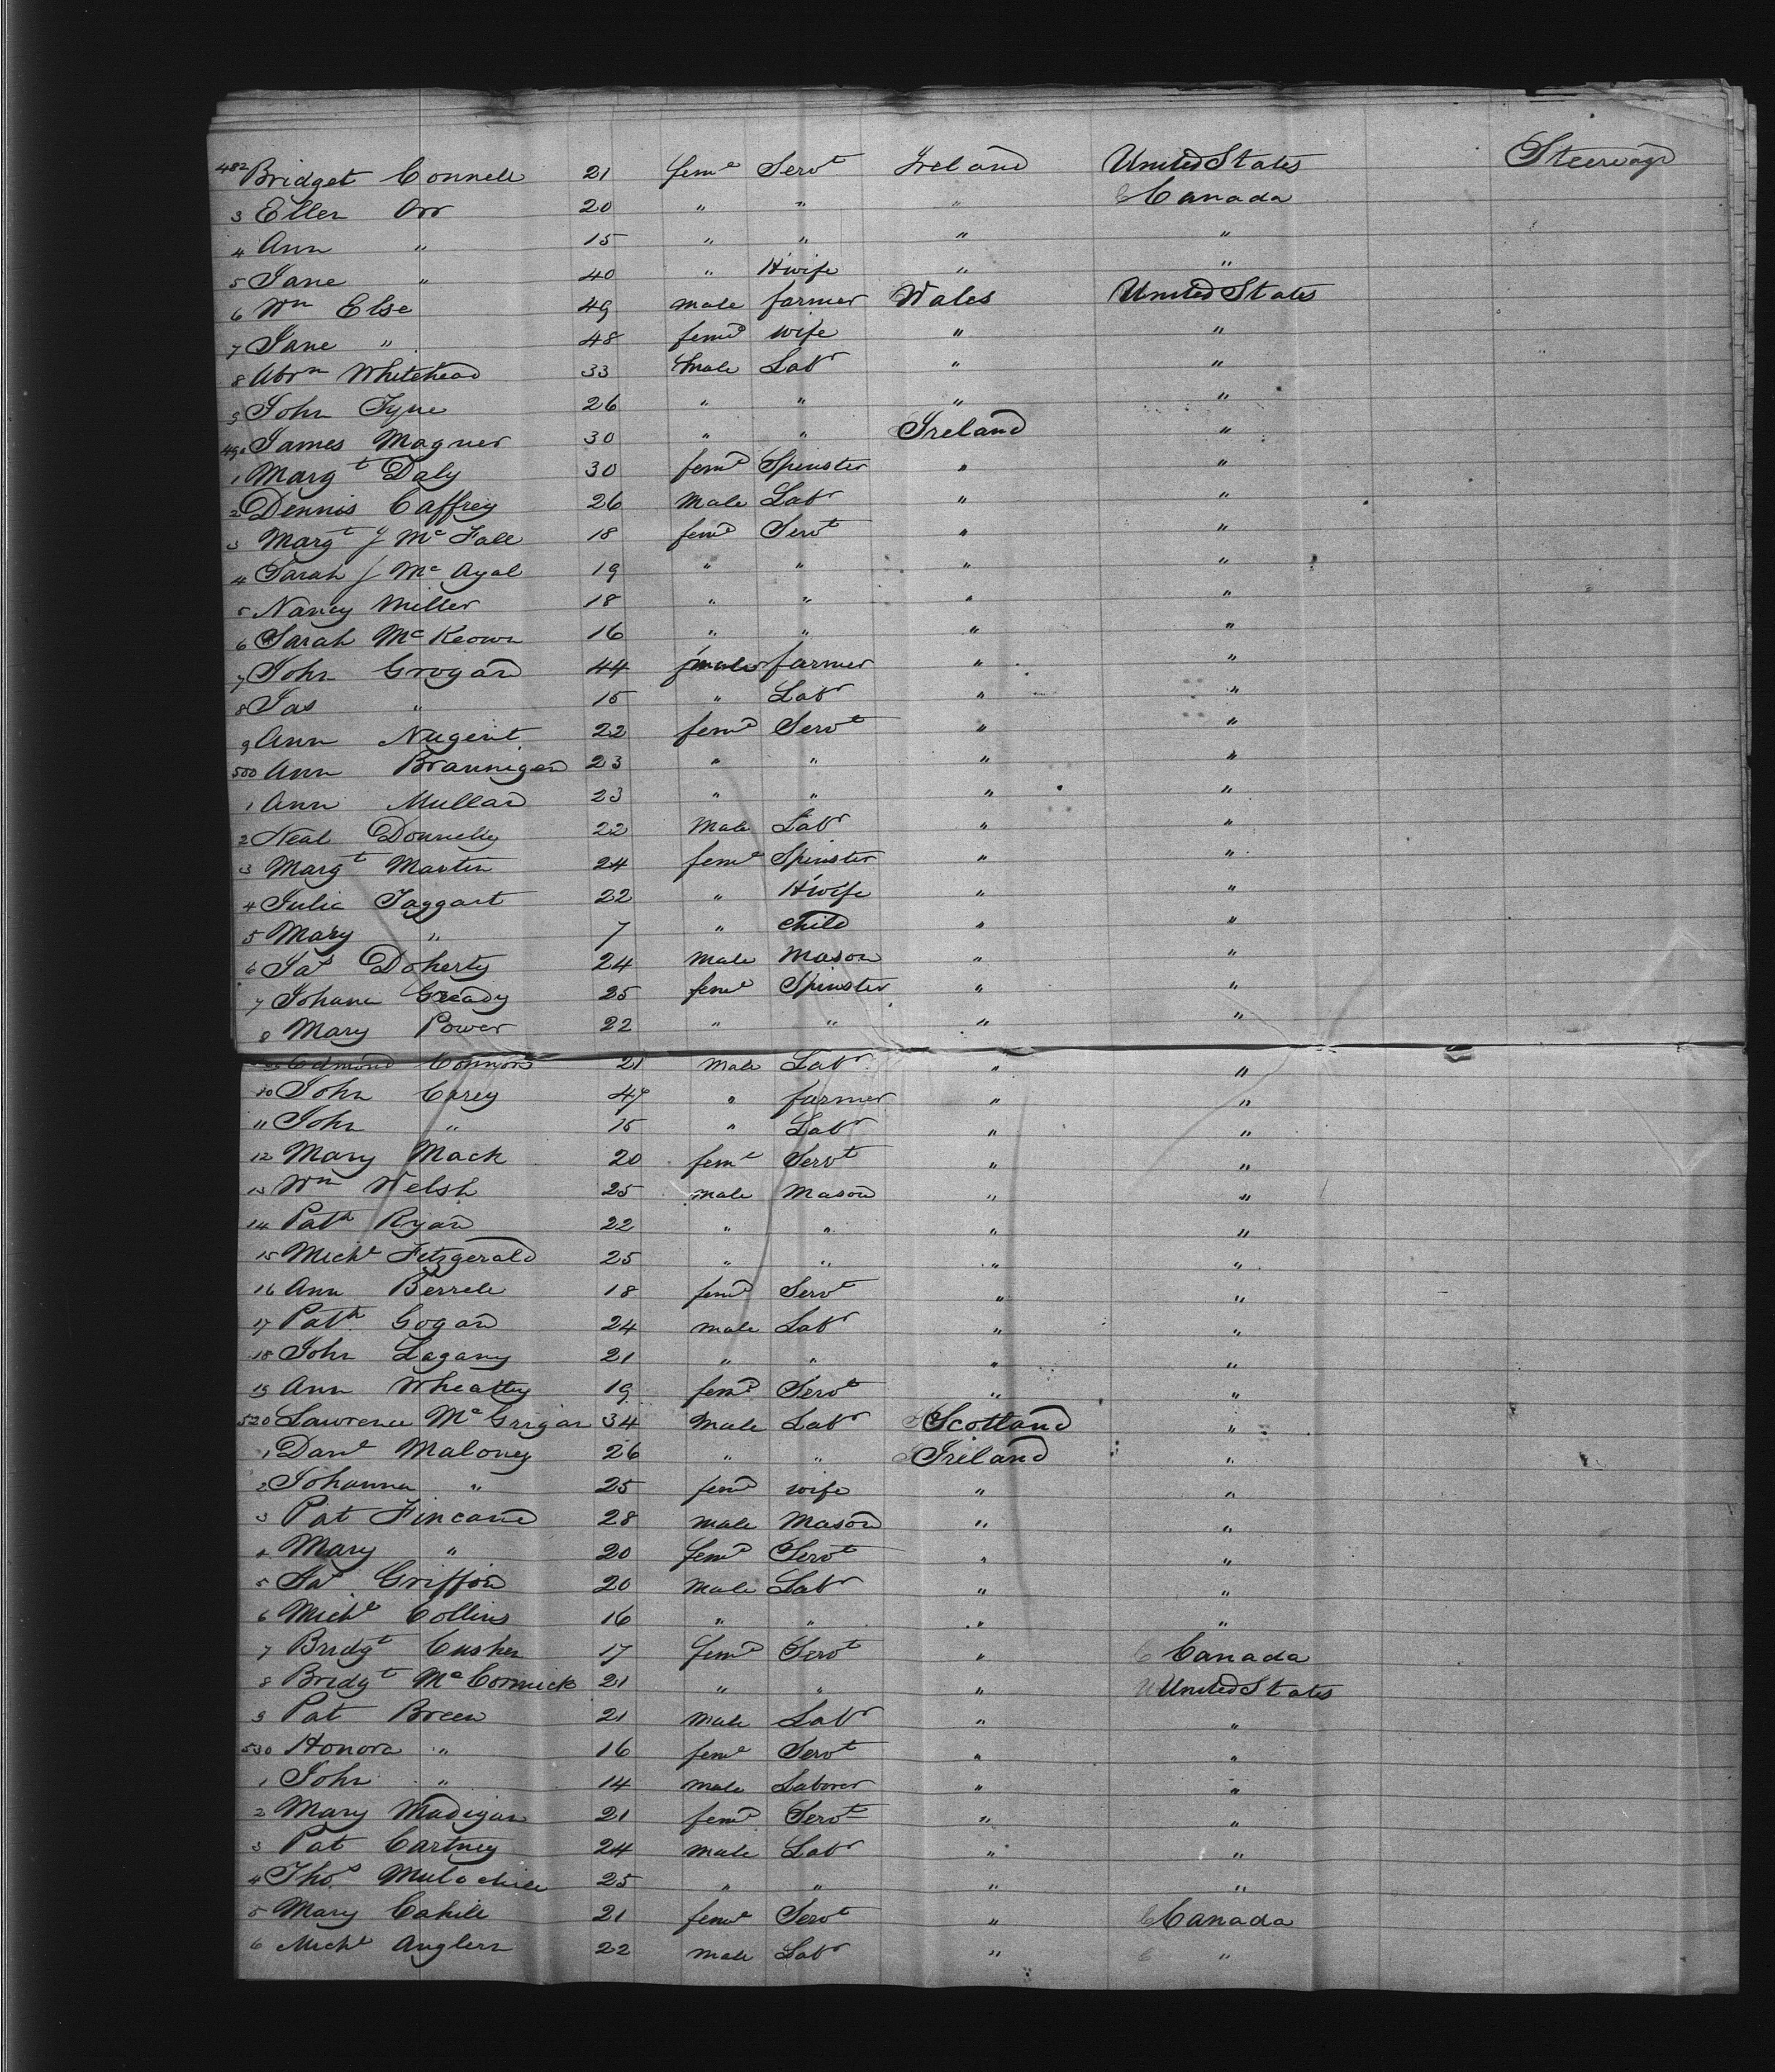 482 Bridget Connell 21 feme Servt Ireland United States Steerage
3 Ellen Orr 20 " " " Canada
4 Ann " 15 " " " "
5 Jane " 40 " H wife " "
6 Wm Else 49 male farmer Wales United States
7 Jane " 48 feme wife " "
8 Abrm Whitehead 33 Male Labr " "
9 John Tyne 26 " " " "
490 James Magner 30 " " Ireland "
1 Margt Daly 30 feme Spinster " "
2 Dennis Caffrey 26 Male Labr " "
3 Margt J McFall 18 feme Servt " "
4 Sarah J McAyal 19 " " " "
5 Nancy Miller 18 " " " "
6 Sarah McKeown 16 " " " "
7 John Grogan 44 male farmer " "
8 Jas " 15 " Labr " "
9 Ann Nugent 22 feme Servt " "
500 Ann Brannigan 23 " " " "
1 Ann Mullan 23 " " " "
2 Neal Donnelly 22 Male Labr " "
3 Margt Martin 24 feme Spinster " "
4 Julia Taggart 22 " H wife " "
5 Mary " 7 " child " "
6 Jas Doherty 24 male Mason " "
7 Johana Gready 25 feme Spinster " "
8 Mary Power 22 " " " "
Edmond Connors 21 Male Labr " "
10 John Carey 47 " farmer " "
11 John " 15 " Labr " "
12 Mary Mack 20 feme Servt " "
13 Wm Welsh 25 male Mason " "
14 Patk Ryan 22 " " " "
15 Michl Fitzgerald 25 " " " "
16 Ann Berrell 18 feme Servt " "
17 Patk Gogan 24 male Labr " "
18 John Lagany 21 " " " "
19 Ann Wheatley 19 feme Servt " "
520 Lawrence McGrigan 34 Male Labr Scotland "
1 Danl Maloney 26 " " Ireland "
2 Johanna " 25 feme wife " "
3 Pat Fincane 28 male Mason " "
4 Mary " 20 feme Servt " "
5 Jas Griffin 20 Male Labr " "
6 Michl Collins 16 " " " "
7 Bridgt Cushen 17 feme Servt " Canada
8 Bridgt McCormick 21 " " " United States
9 Pat Breen 21 Male Labr " "
530 Honora " 16 feme Servt " "
1 John " 14 male Laborer " "
2 Mary Madigan 21 feme Servt " "
3 Pat Cartney 24 male Labr " "
4 Thos 25 " " " "
5 Mary Cahill 21 feme Servt " Canada
6 Michl Anglern 22 male Labr " "